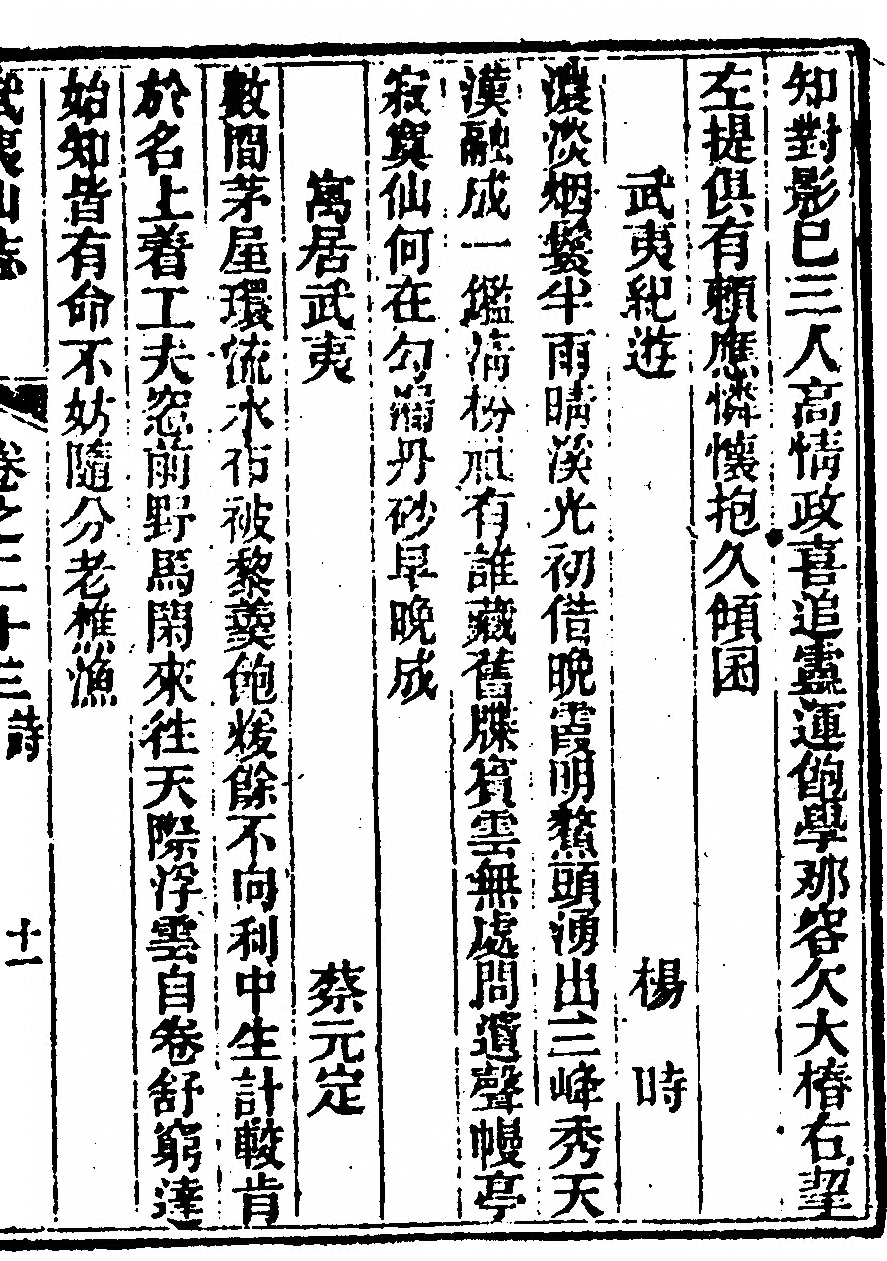 知對影已三人高情政喜追靈運飽學那容欠大椿右挈
左提俱有賴應憐懷抱久傾囷
武夷紀遊 楊時
濃淡烟鬟半雨晴溪光初借晚霞明鰲頭湧出三峰秀天
漢融成一鑑清粉𤓰有誰藏舊牒賓雲無處問遺聲幔亭
寂寞仙何在勾漏丹砂早晚成
寓居武夷 蔡元定
數間茅屋環流水布被藜羹飽煖餘不向利中生計較肯
於名上着工夫窓前野馬閑來往天際浮雲自卷舒窮達
始知皆有命不妨隨分老樵漁
武夷山志 卷之二十三 詩 十一